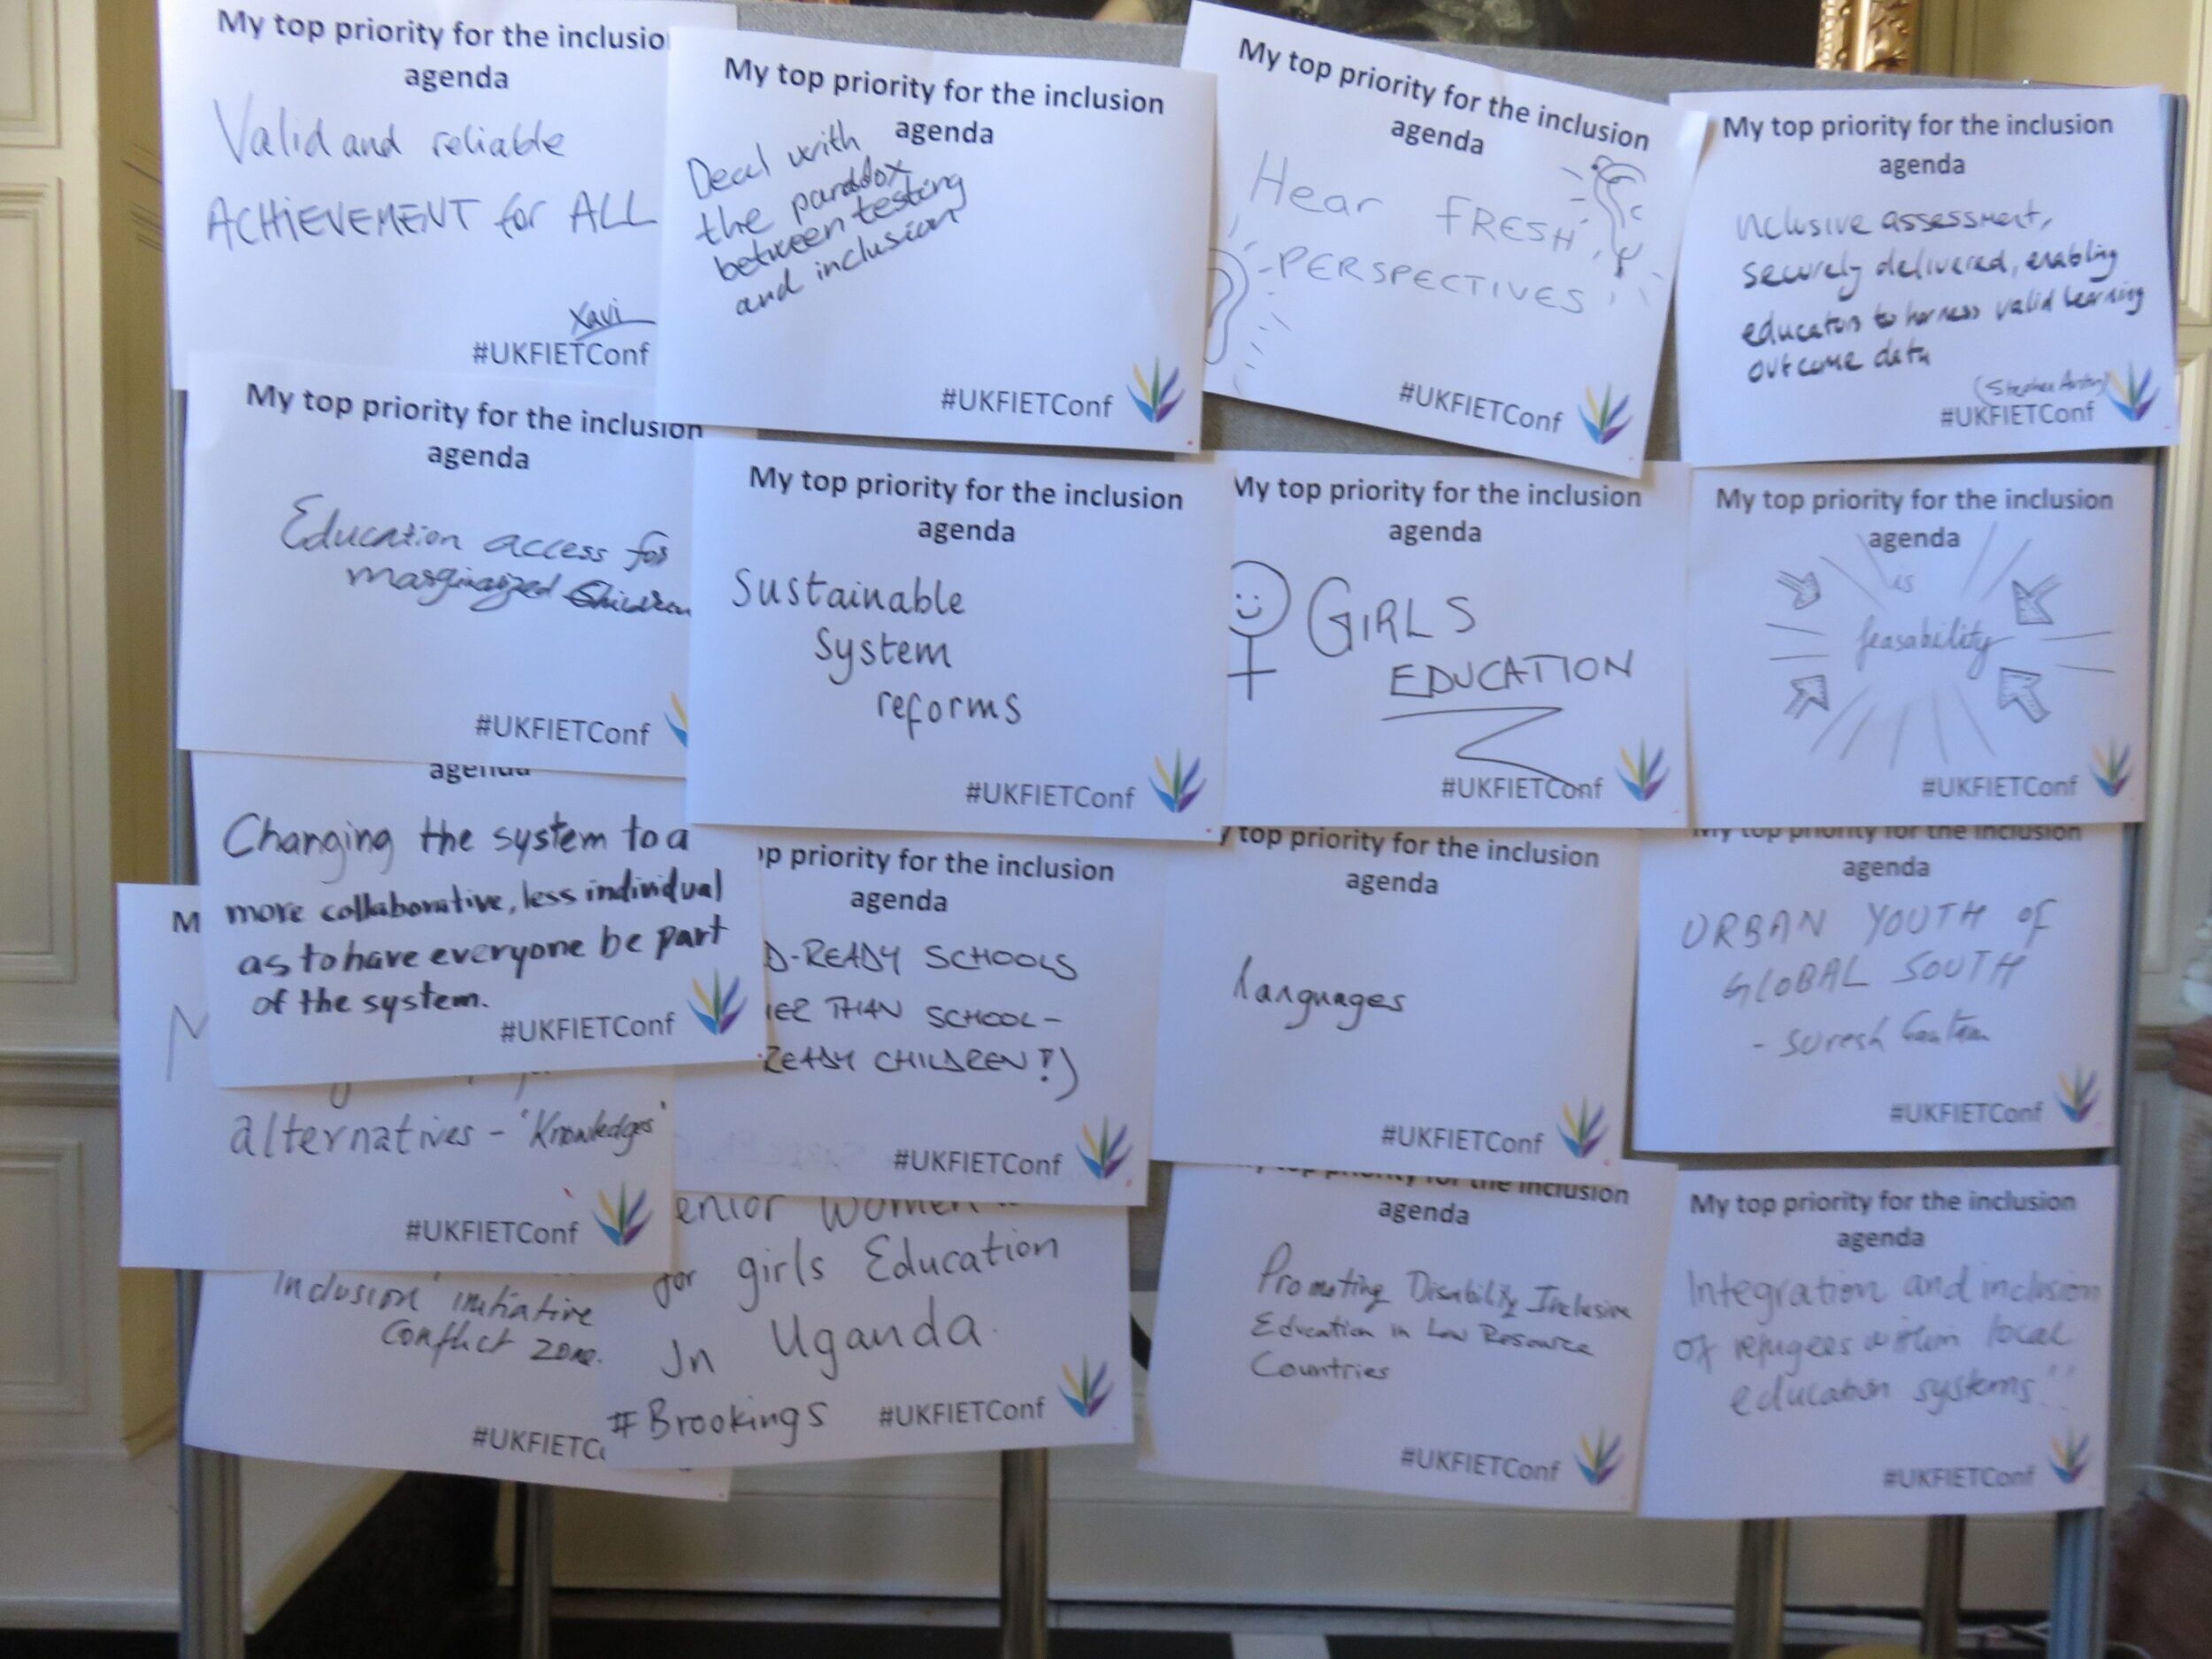 My top priority for the inclusio
agenda
Valid and reliable
ACHiEVEMENT for ALL
Xavi
#UKFIETConf
My top priority for the inclusion
agenda
Deal with
the paradox
between testing
and inclusion
#UKFIETConf
My top priority for the inclusion
agenda
Hear FRESH
PERSPECTIVES
#UKFIETConf
My top priority for the inclusion
agenda
nclusive assessment,
securely delivered, enabling
educators to harness valid learning
outcome data
(Stephen
#UKFIETConf
My top priority for the inclusion
agenda
Education access for
marginazed Children
#UKFIETConf
My top priority for the inclusion
agenda
Sustainable
System
reforms
#UKFIETConf
My top priority for the inclusion
agenda
GIRLS
EDUCATION
#UKFIETConf
My top priority for the inclusion
agenda
is
feasability
#UKFIETConf
agenda
Changing the system to a
more collaborative, less individual
as to have everyone be part
of the system.
#UKFIETConf
priority for the inclusion
agenda
D-READY SCHOOLS
THAN SCHOOL-
READY CHILDREN!)
#UKFIETConf
top priority for the inclusion
agenda
languages
#UKFIETConf
My top priority for the inclusion
agenda
URBAN YOUTH OF
GLOBAL SOUTH
- Suresh Gautam
#UKFIETConf
M
alternatives - 'Knowledges'
#UKFIETConf
Inclusion' initiative
Conflict zone.
#UKFIETC
enior Women
for girls Education
In Uganda.
#Brookings
#UKFIETConf
top priority for the inclusion
agenda
Promoting Disability Inclusive
Education in Low Resource
Countries
#UKFIETConf
My top priority for the inclusion
agenda
Integration and inclusion
of refugees within local
education systems!!
#UKFIETConf